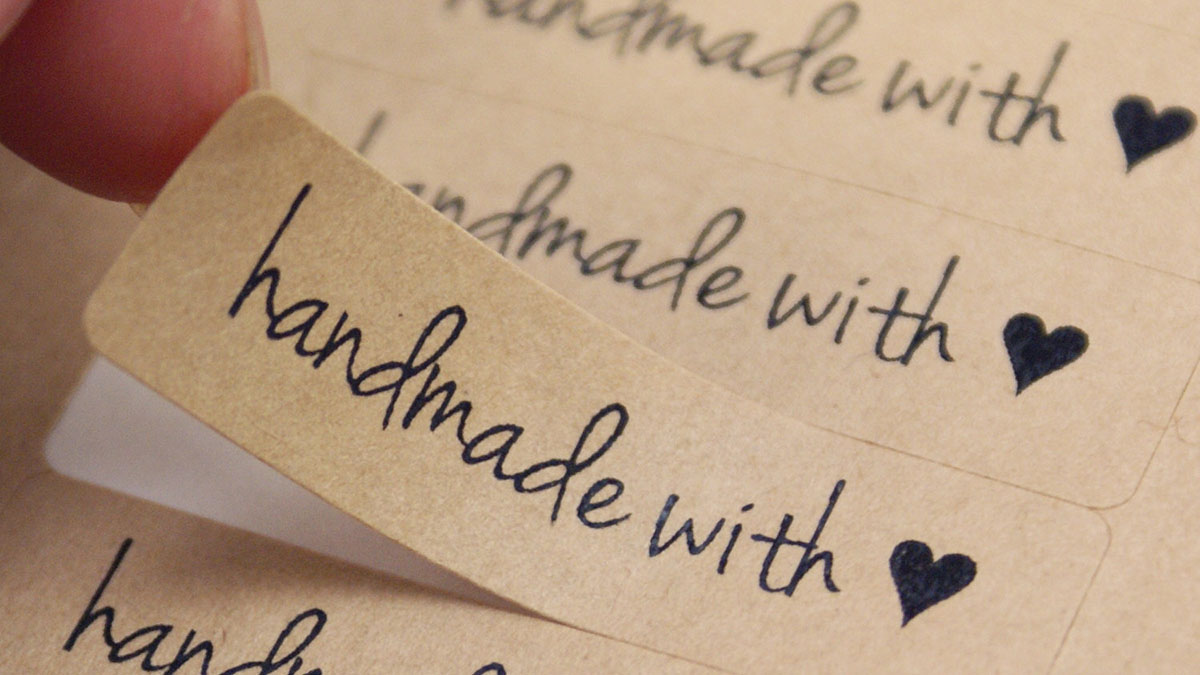 handmade with ♥
handmade with ♥
handmade with ♥